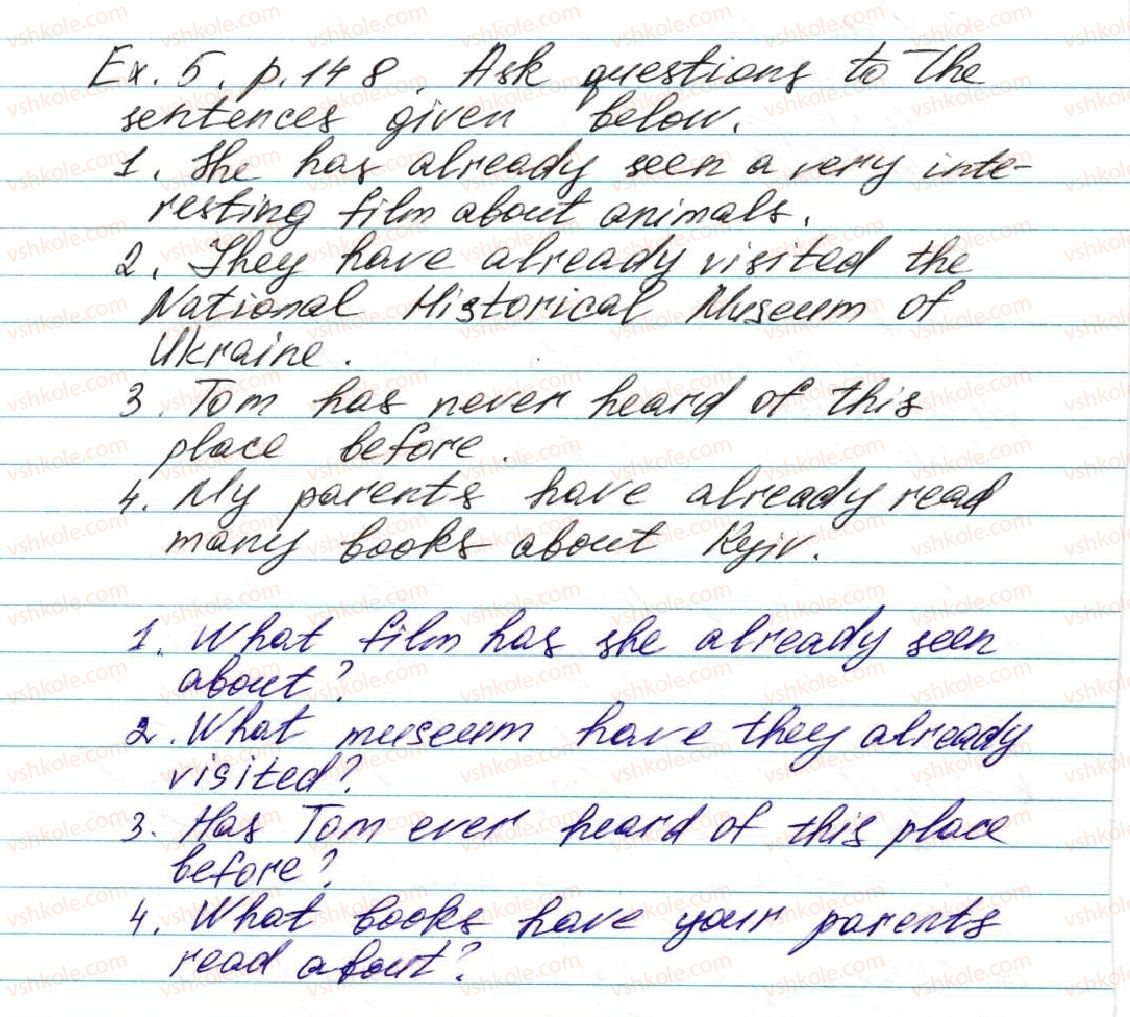 Ex. 5, p. 148. Ask questions to the
sentences given below.
1. She has already seen a very inte-
resting film about animals.
2. They have already visited the
National Historical Museum of
Ukraine.
3. Tom has never heard of this
place before.
4. My parents have already read
many books about Kyiv.
1. What film has she already seen
about?
2. What museum have they already
visited?
3. Has Tom ever heard of this place
before?
4. What books have your parents
read about?
vshkole.com